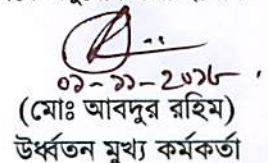 ০১-১১-২০১৮
(মোঃ আবদুর রহিম)
উর্ধ্বতন মুখ্য কর্মকর্তা